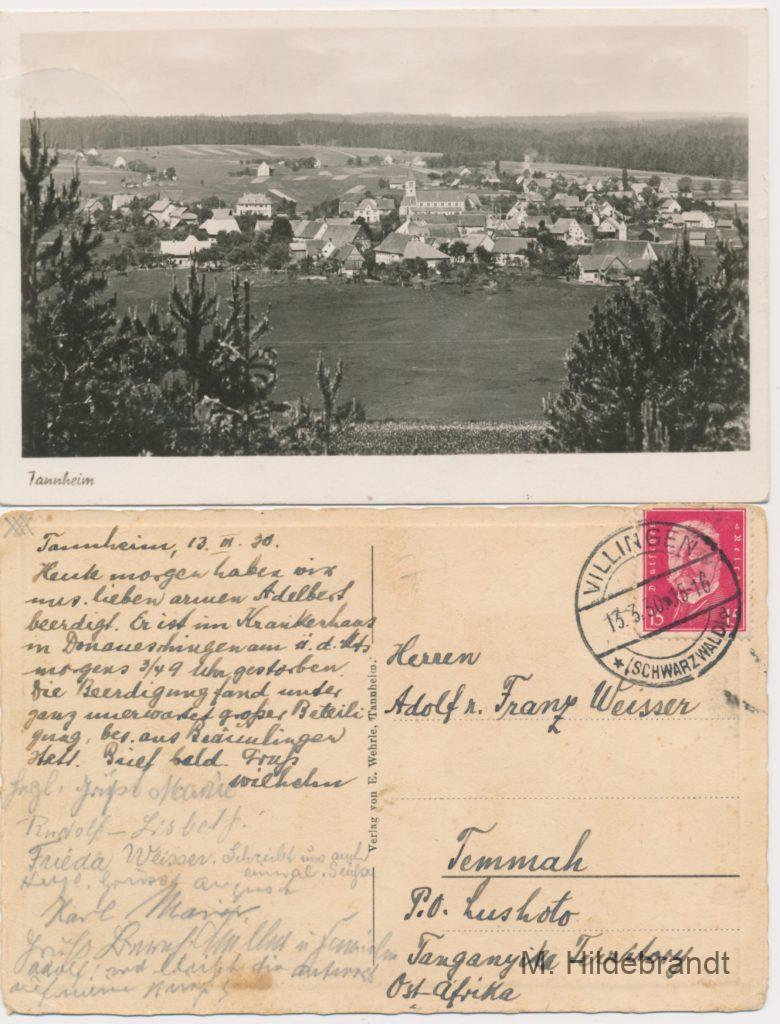 Tannheim
Tannheim, 13. III. 30.
Heute morgen haben wir
uns. lieben armen Adelbert
beerdigt. Er ist im Krankenhaus
in Donaueschingen am 11. d. Mts
morgens 3/4 9 Uhr gestorben.
Die Beerdigung fand unter
ganz unerwartet großer Beteili
gung, bes. aus Bräunlingen
statt. Brief bald. Gruß
Wilhelm
Herzl. Grüße Marie
Rudolf – Lisbeth.
Frieda Weisser. Schreibt uns auch
einmal.
Karl
Gruß
Verlag von E. Wehrle, Tannheim.
VILLINGEN
13.3.30
★ (SCHWARZWALD)
Deutsches Reich
15 15
Herren
Adolf u. Franz Weisser
Temmah
P.O. Lushoto
Tanganyika Territory
Ost-Afrika
M. Hildebrandt